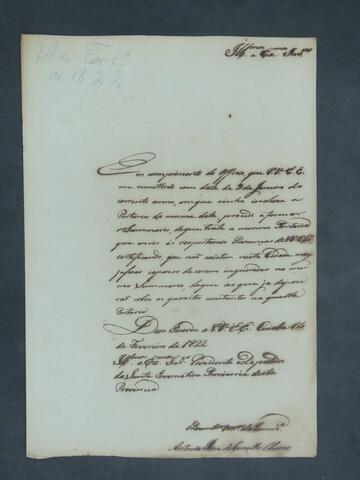 14 de Fever.º
de 1822
Ill.mos e Ex.mos Snr.es
Em cumprimento do Officio que V.V. E.E.
me remetterão com data de 3 de Janeiro do
corrente anno, em que vinha incluza a
Portaria da mesma data, procedi a formar
o Summario, de que trata a mesma Portaria
que envio ás respeitaveis Prezenças de V.V. E.E.
certificando que não existem nesta Cidade mais
pessoas capazes de serem inqueridas no mes
mo Summario, do que as que ja depoze
rão sobre os quezitos constantes na quella
Portaria
Deos Guarde a V.V. E.E. Cuiabá 14
de Fevereiro de 1822
Ill.mos e Ex.mos Snr.es Prezidente e Deputados
da Junta Governativa Provizoria desta
Provincia
Antonio Joze de Carvalho Chaves